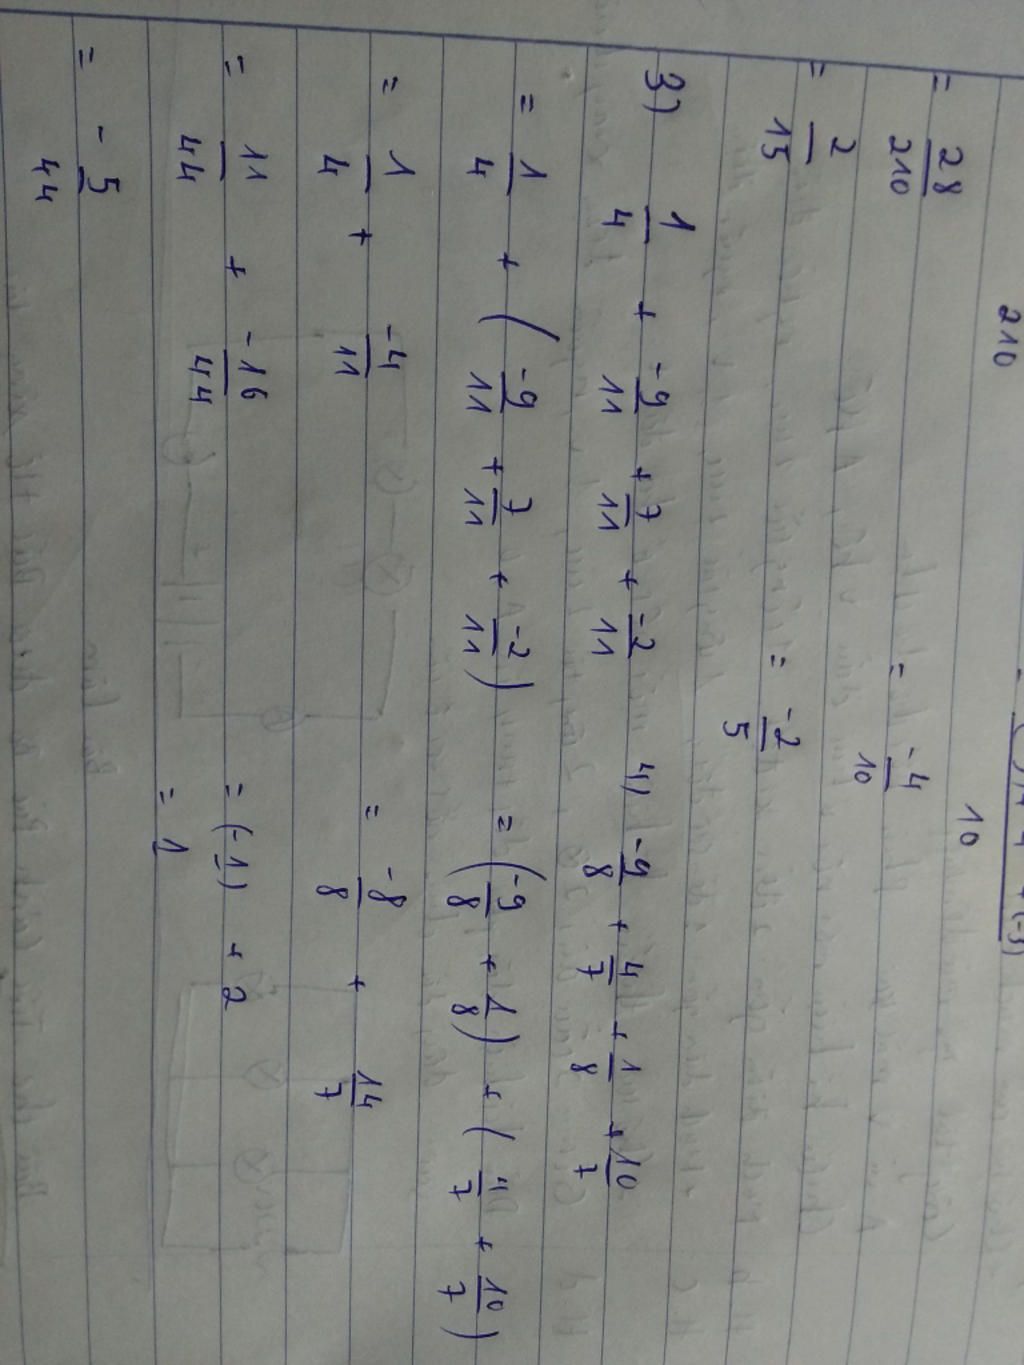 210
= 28/210
= 2/15
10
= -4/10
= -2/5
3) 1/4 + -9/11 + 7/11 + -2/11
= 1/4 + (-9/11 + 7/11 + -2/11)
= 1/4 + -4/11
= 11/44 + -16/44
= - 5/44
4) -9/8 + 4/7 + 1/8 + 10/7
= (-9/8 + 1/8) + (4/7 + 10/7)
= -8/8 + 14/7
= (-1) + 2
= 1